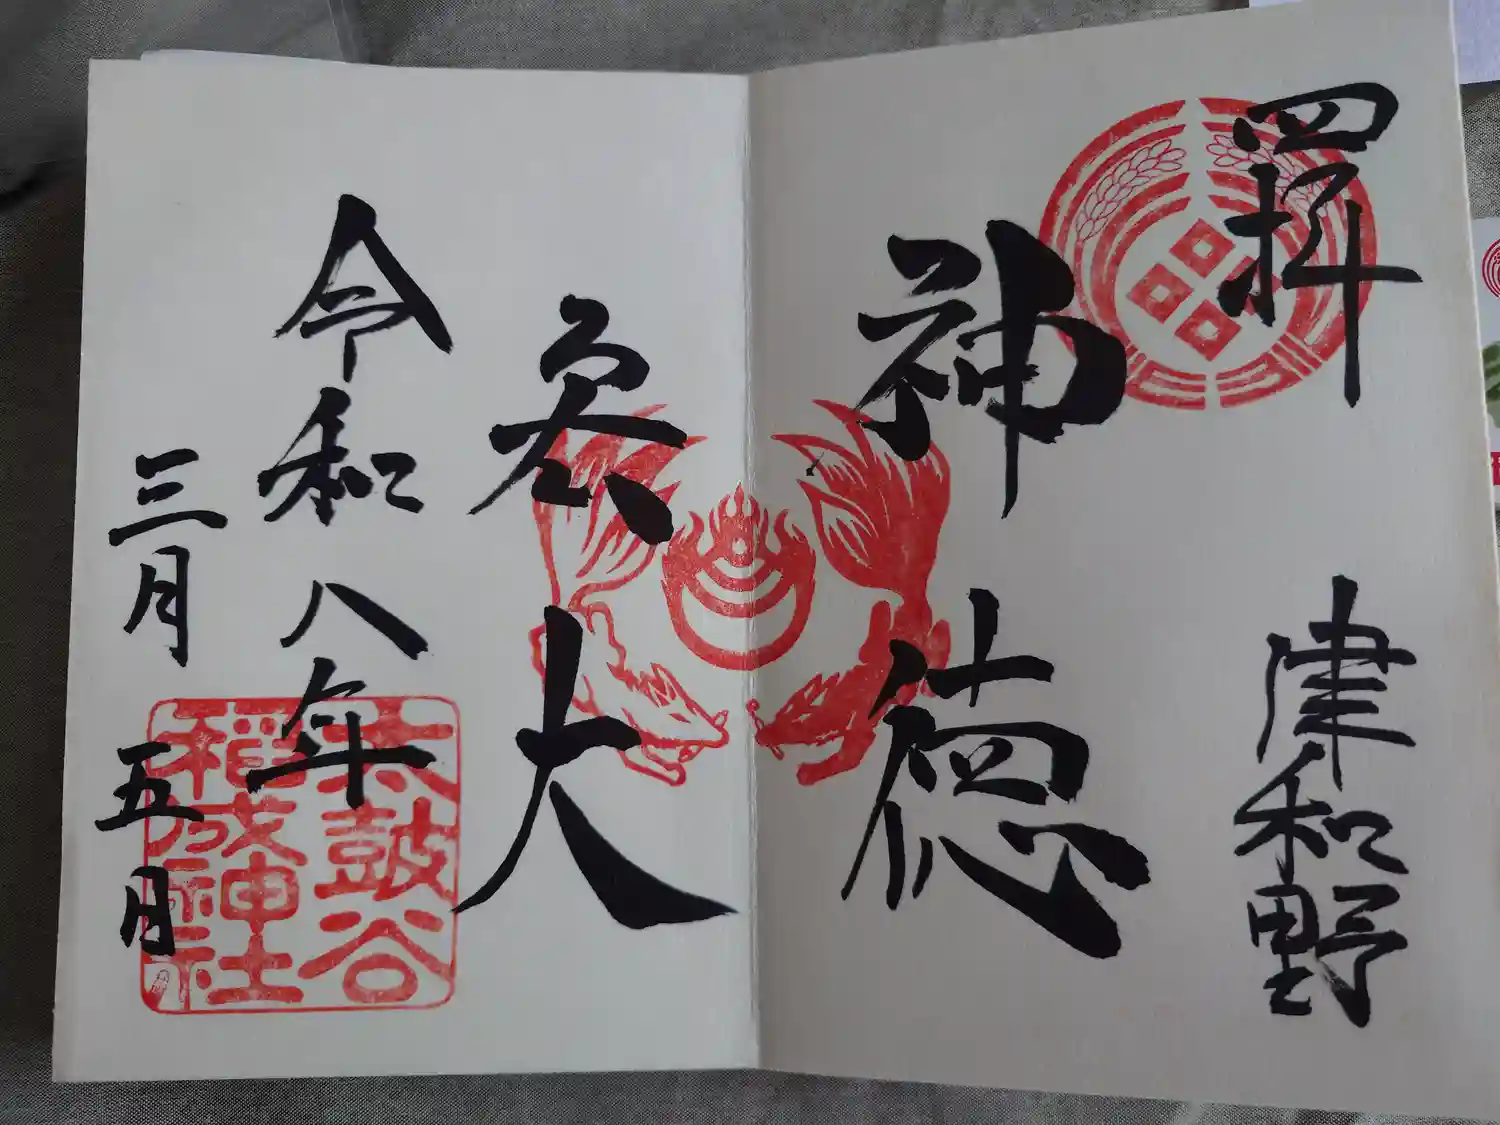 四拝 津和野
神徳
大
令和八年
三月五日
太鼓谷
稲成神社